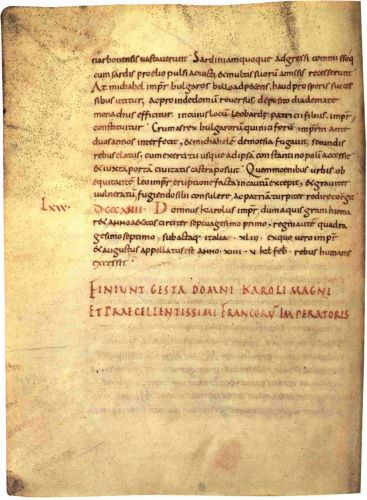 narbonensis vastaverunt. Sardiniam quoque adgressi commissoq;
cum sardis proelio pulsi ac victi & multis suorũ amissis recesserunt.
At michahel impr̃ bulgaros bello adp&ens, haud prosperis succes
sibus utitur, ac proinde domũ reversus deposito diademate
monachus efficitur. in cuius locũ Leo bardę patricii filius impr̃
constituitur. Crumas rex bulgarorũ qui niciforũ imprẽ ante
duos annos interfecit, & michahelẽ de moesia fugavit, secundis
rebus elatus, cum exercitu usque ad ipsã constantinopolĩ accessit
& iuxta portã civitatis castra posuit. Quem moenibus urbis ob
equitantẽ Leo impr̃ eruptione facta incautũ excepit, & graviter
vulneratũ fugiendo sibi consulere, ac patriã turpiter redire coegit
Lxx. DCCCXIIII. Domnus Karolus impr̃, dum aquisgrani hiema
r&, anno a&atis circiter septuagesimo primo, regni autẽ quadra
gesimo septimo, subactaeq; italiae .XLIII. ex quo vero impr̃
& augustus appellatus est anno .XIIII. V. kl̃ feb. rebus humanis
excessit.
FINIUNT GESTA DOMNI KAROLI MAGNI
ET PRAECELLENTISSIMI FRANCORŨ IMPERATORIS